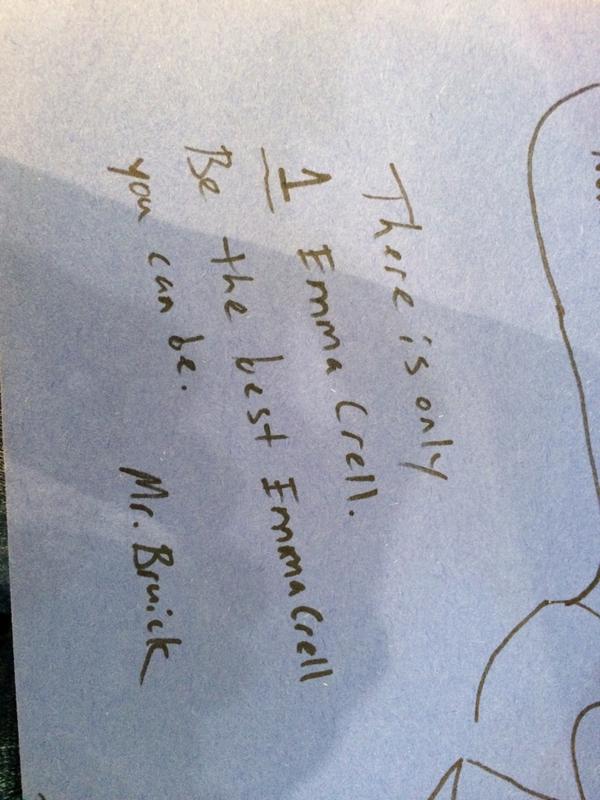 There is only
1 Emma Crell.
Be the best Emma Crell
you can be.
Mr. Bruick